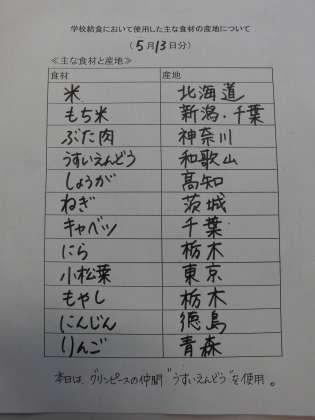 学校給食において使用した主な食材の産地について
(5月13日分)
≪主な食材と産地≫
食材 産地
米 北海道
もち米 新潟・千葉
ぶた肉 神奈川
うすいえんどう 和歌山
しょうが 高知
ねぎ 茨城
キャベツ 千葉
にら 栃木
小松菜 東京
もやし 栃木
にんじん 徳島
りんご 青森
本日は、グリンピースの仲間"うすいえんどう"を使用。